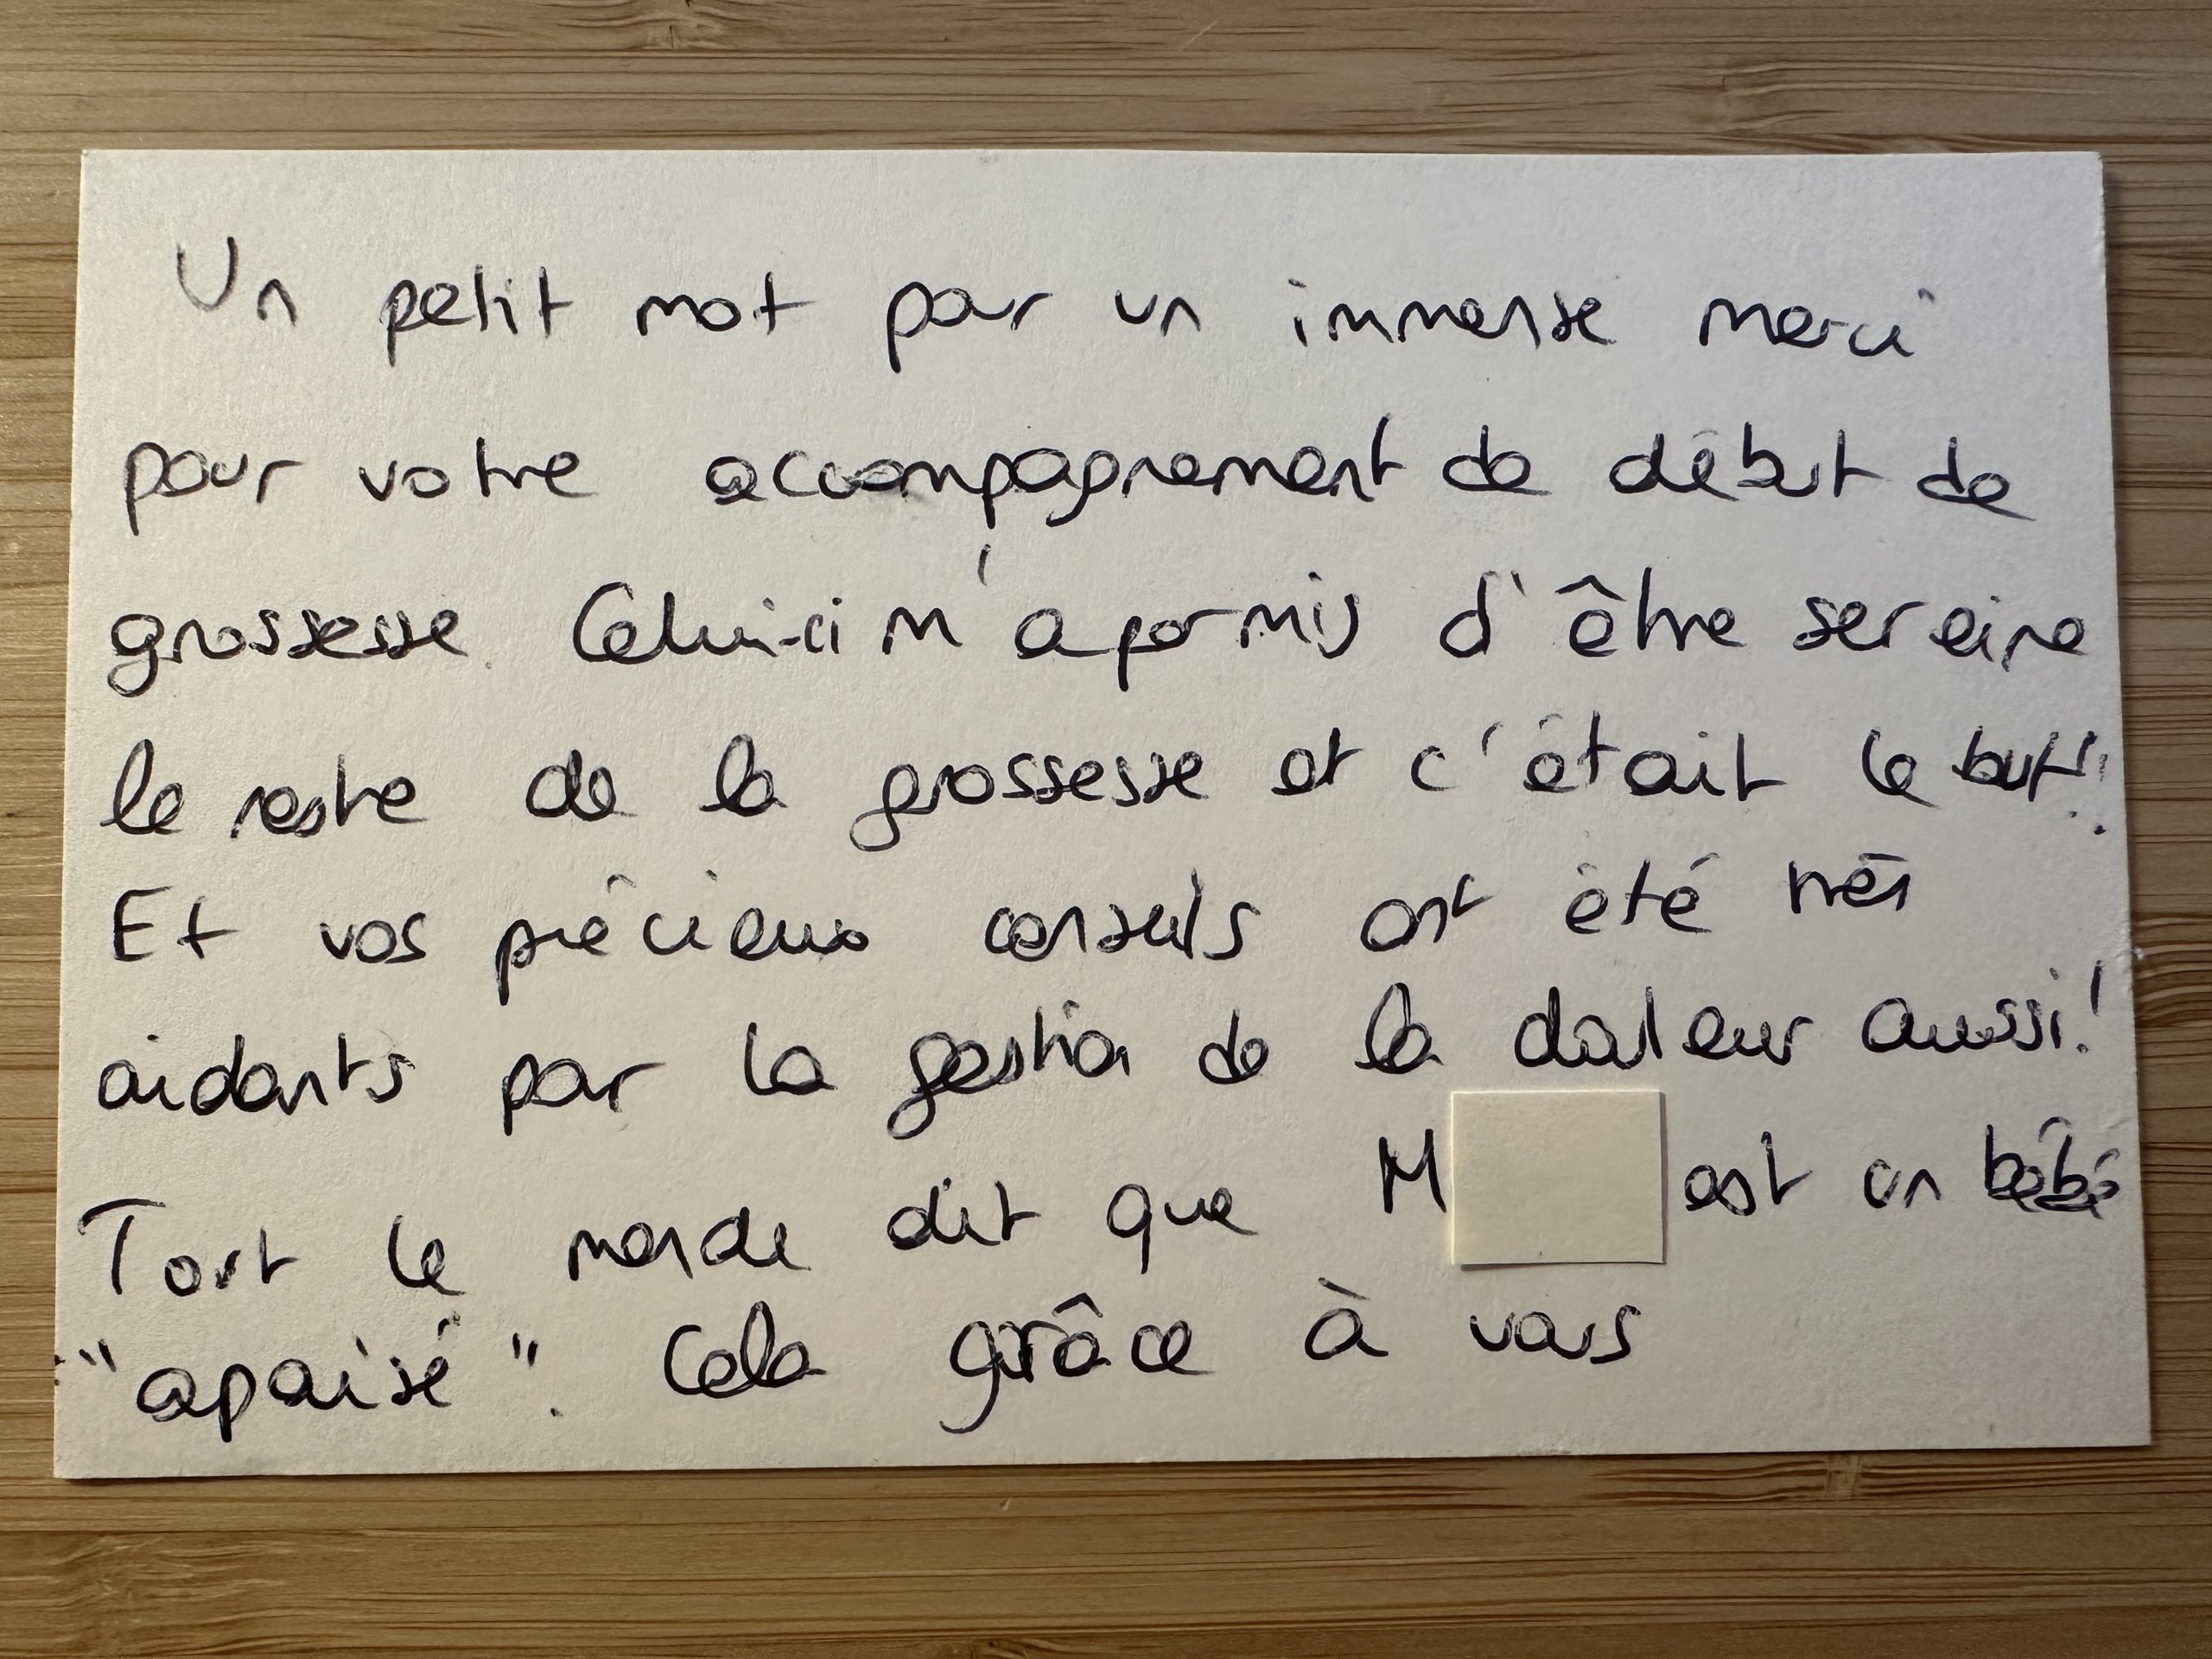 Un petit mot pour un immense merci
pour votre accompagnement de début de
grossesse. Celui-ci m'a permis d'être sereine
le reste de la grossesse et c'était le but!!
Et vos précieux conseils ont été très
aidants par la gestion de la douleur aussi!
Tout le monde dit que M est un bébé
"apaisé". Cela grâce à vous